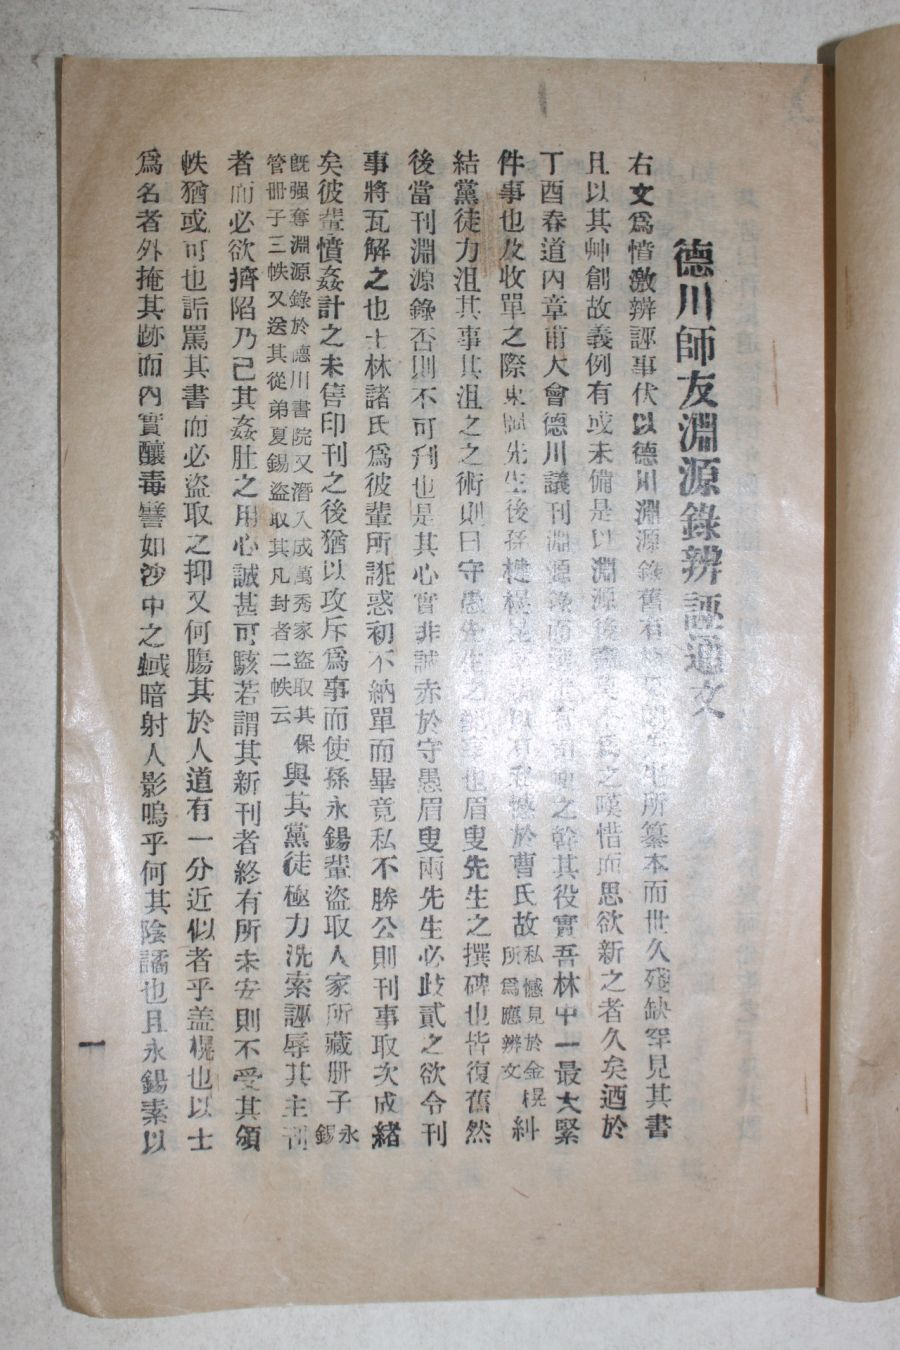 德川師友淵源錄辨誣通文
右文爲憤激辨誣事伏以德川淵源錄舊有 先生所纂本而世久殘缺罕見其書
且以其艸創故義例有或未備是以淵源後裔莫不爲之嘆惜而思欲新之者久矣迺於
丁酉春道內章甫大會德川議刊淵源錄而 之幹其役實吾林中一最大緊
件事也及收單之際東岡先生後孫 私憾於曹氏故
私憾見於金榥
所爲應辨文
糾
結黨徒力沮其事其沮之之術則曰守愚先生之 也眉叟先生之撰碑也皆復舊然
後當刊淵源錄否則不可刋也是其心實非誠赤於守愚眉叟兩先生必歧貳之欲令刊
事將瓦解之也士林諸氏爲彼輩所誑惑初不納單而畢竟私不勝公則刊事取次成緖
矣彼輩憤姦計之未售印刊之後猶以攻斥爲事而使孫永錫輩盜取人家所藏册子
永錫
旣强奪淵源錄於德川書院又潛入成萬秀家盜取其保
管册子三帙又送其從弟夏錫盜取其凡封者二帙云
與其黨徒極力洗索誣辱其主刊
者而必欲擠陷乃已其姦肚之用心誠甚可駭若謂其新刊者終有所未安則不受其頒
帙猶或可也詬罵其書而必盜取之抑又何膓其於人道有一分近似者乎盖榥也以士
爲名者外掩其跡而內實釀毒譬如沙中之蜮暗射人影嗚乎何其陰譎也且永錫素以
一